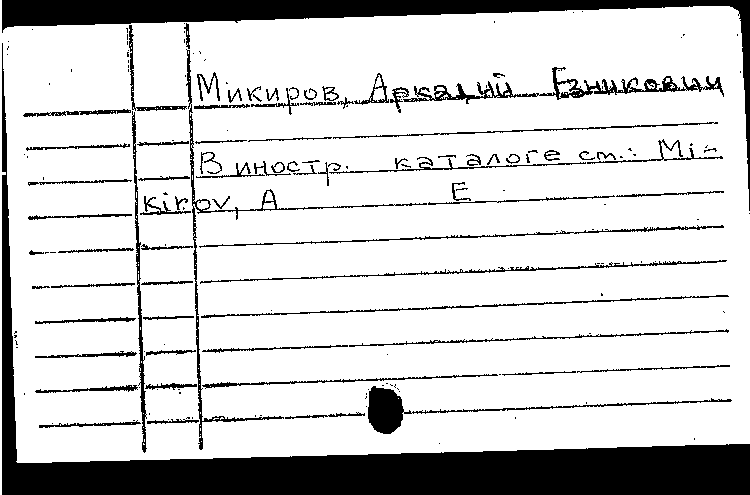 Микиров, Аркадий Езникович
В иностр. каталоге см.: Mi-
kirov, A E